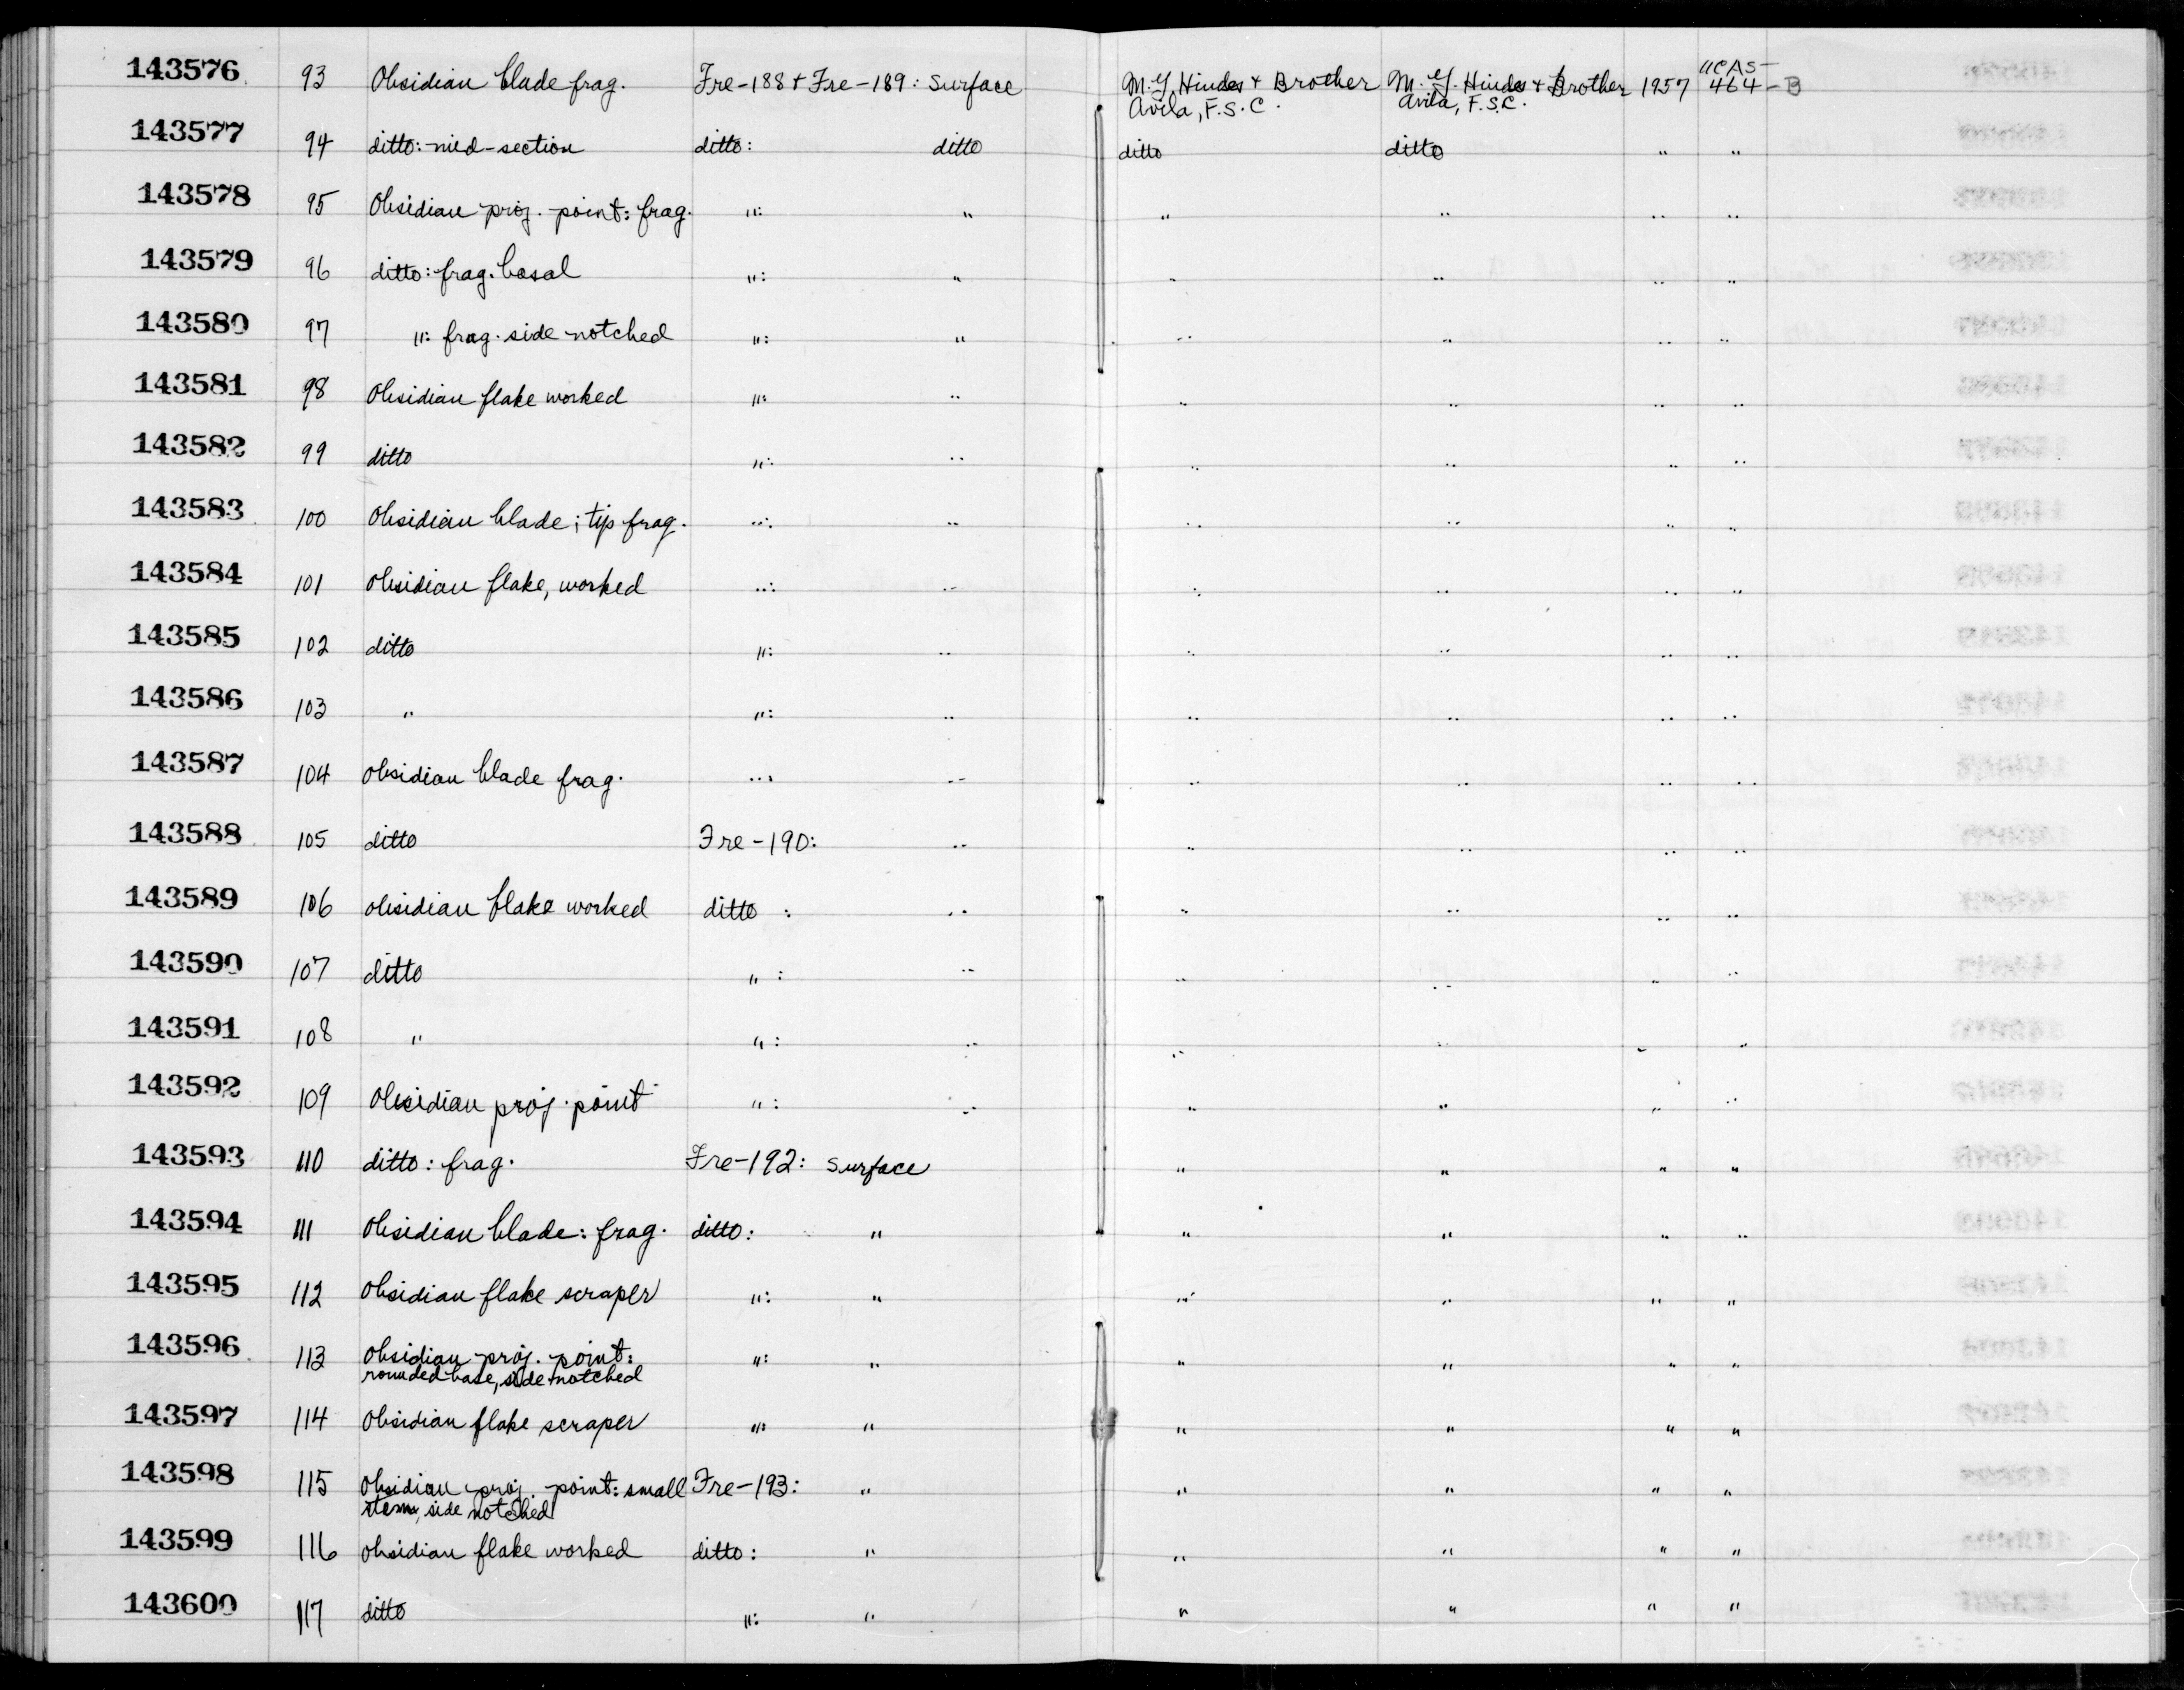 143576 93 Obsidian blade frag. Fre-188 + Fre-189: Surface M.G. Hindes + Brother M.G. Hindes + Brother 1957 UCAS-
Avila, F.S.C. Avila, F.S.C. 464-B
143577 94 ditto: mid-section ditto: ditto ditto ditto " "
143578 95 Obsidian proj. point: frag. ": " " " " "
143579 96 ditto: frag. basal ": " " " " "
143580 97 ": frag. side notched ": " " " " "
143581 98 Obsidian flake worked ": " " " " "
143582 99 ditto ": " " " " "
143583 100 Obsidian blade; tip frag. ": " " " " "
143584 101 Obsidian flake, worked ": " " " " "
143585 102 ditto ": " " " " "
143586 103 " ": " " " " "
143587 104 Obsidian blade frag. ": " " " " "
143588 105 ditto Fre-190: " " " " "
143589 106 obsidian flake worked ditto : " " " " "
143590 107 ditto " : " " " " "
143591 108 " " : " " " " "
143592 109 Obsidian proj. point " : " " " " "
143593 110 ditto: frag. Fre-192: Surface " " " "
143594 111 Obsidian blade: frag. ditto: " " " " "
143595 112 Obsidian flake scraper ": " " " " "
143596 113 Obsidian proj. point: ": " " " " "
rounded base, side notched
143597 114 Obsidian flake scraper ": " " " " "
143598 115 Obsidian proj. point: small Fre-193: " " " " "
stem, side notched
143599 116 Obsidian flake worked ditto: " " " " "
143600 117 ditto ": " " " " "